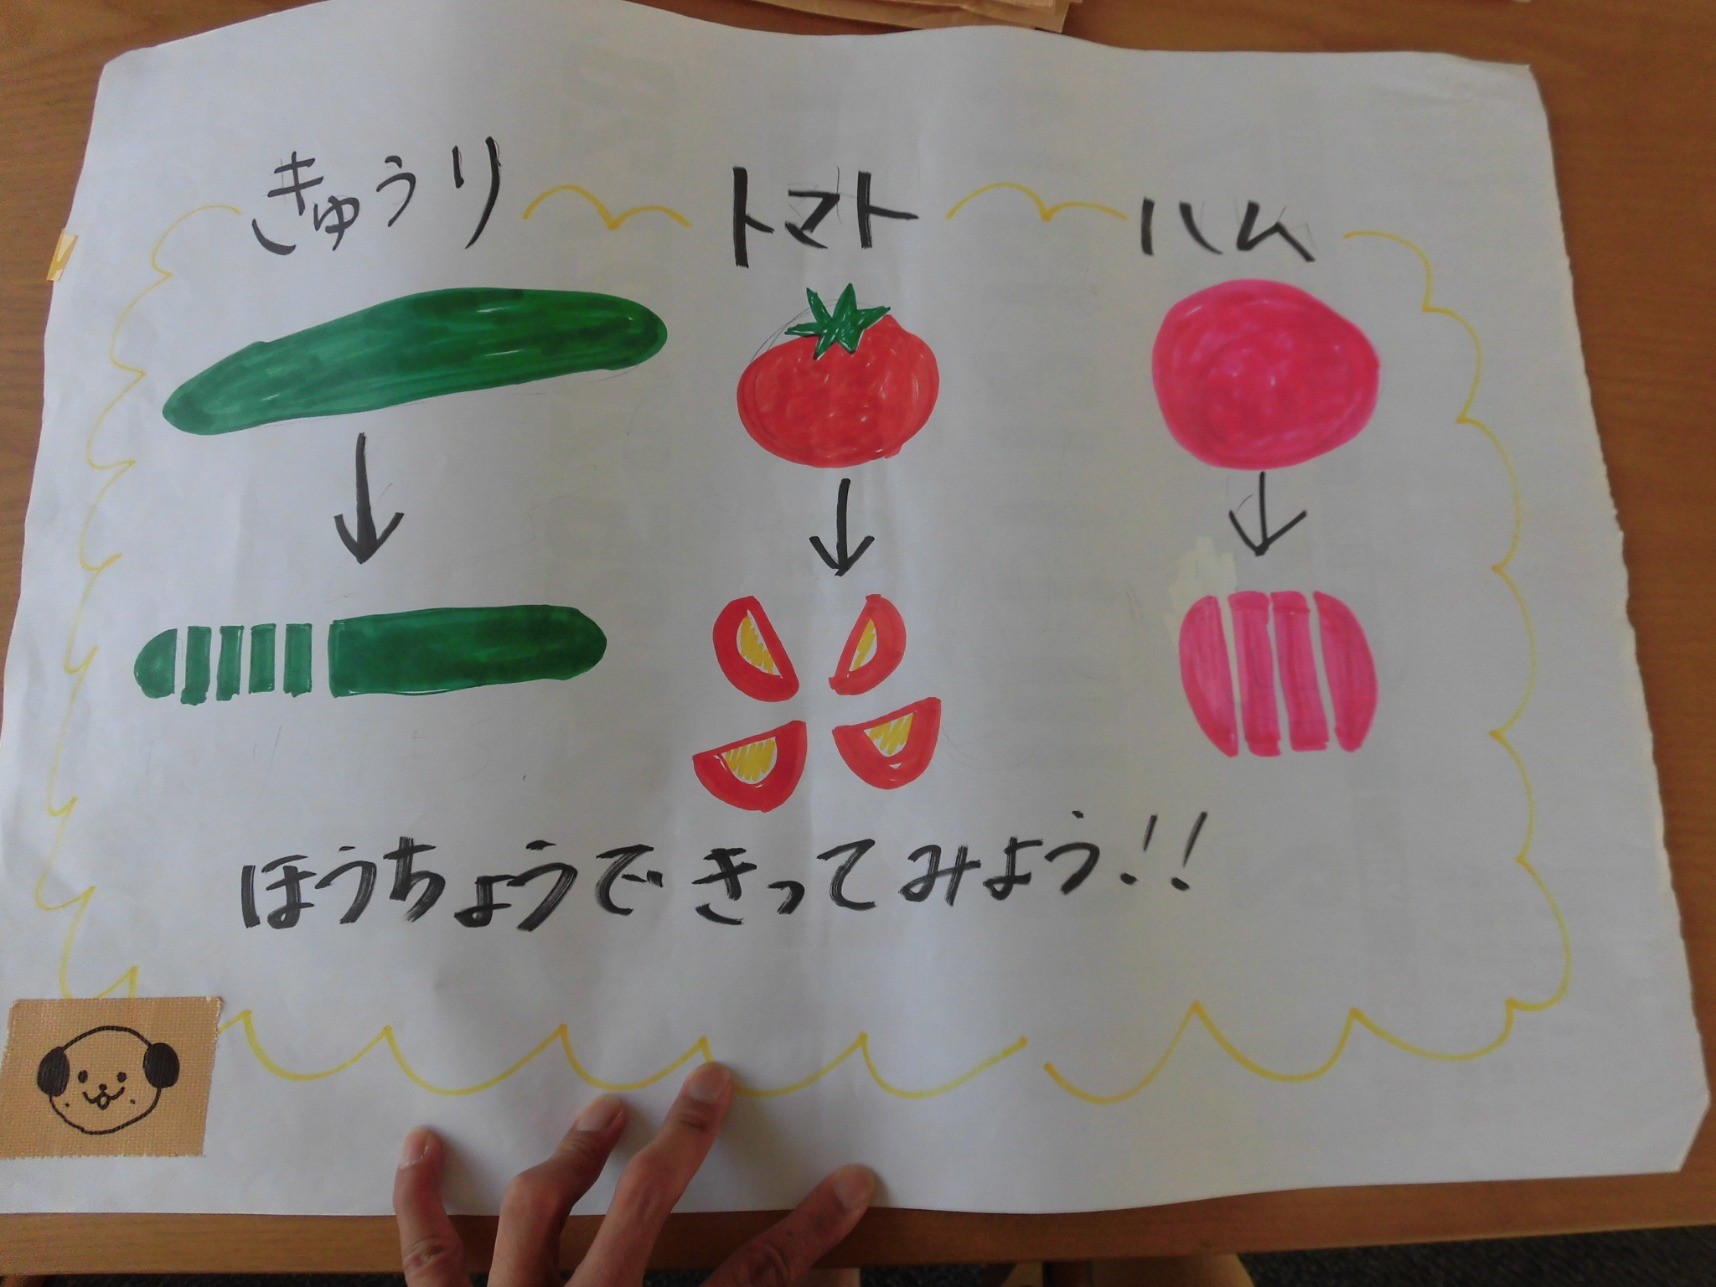 きゅうり トマト ハム
ほうちょうできってみよう!!